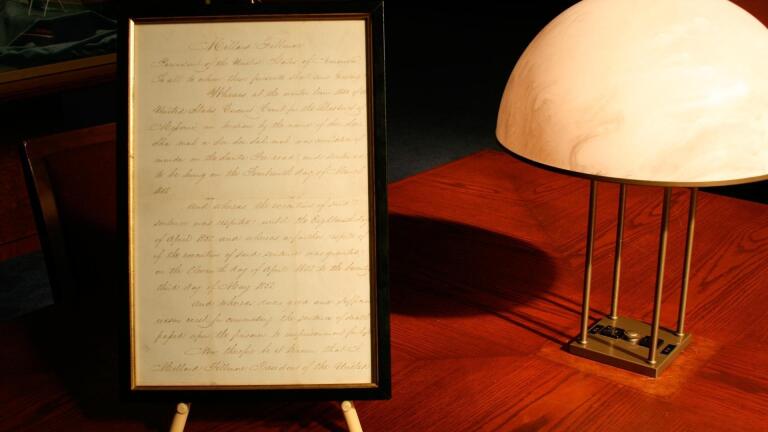 Millard Fillmore
President of the United States of America
To all to whom these presents shall come Greeting
Whereas at the winter term 1852 of the
United States Circuit Court for the District of
an Indian by the name of
See see sah mah was convicted of
murder on the Santa Fee road, and sentenced
to be hung on the Fourteenth day of March
1852
And whereas the execution of said
sentence was respited until the Eighteenth day
of April 1852 and whereas a further respite of
of the execution of said sentence was granted
on the Eleventh day of April 1852 to the twenty
third day of May 1852
And whereas good and sufficient
reason exist for commuting the sentence of death
passed upon the prisoner to imprisonment for life
Now therefore be it known, that I
Millard Fillmore President of the United